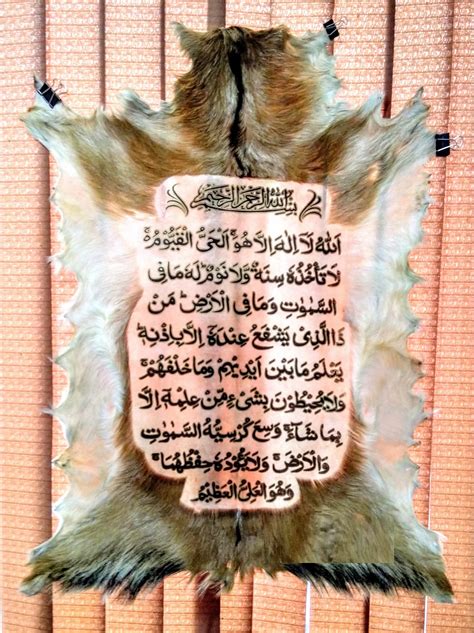 بسم الله الرحمن الرحيم
اَللّٰهُ لَآ اِلٰهَ اِلَّا هُوَ ۚ اَلْحَیُّ الْقَیُّوْمُ ۚ
لَا تَاْخُذُهٗ سِنَةٌ وَّلَا نَوْمٌ ؕ لَهٗ مَا فِی
السَّمٰوٰتِ وَمَا فِی الْاَرْضِ ؕ مَنْ
ذَا الَّذِیْ یَشْفَعُ عِنْدَهٗٓ اِلَّا بِاِذْنِهٖ ؕ
یَعْلَمُ مَا بَیْنَ اَیْدِیْهِمْ وَمَا خَلْفَهُمْ ۚ
وَلَا یُحِیْطُوْنَ بِشَیْءٍ مِّنْ عِلْمِهٖٓ اِلَّا
بِمَا شَآءَ ۚ وَسِعَ كُرْسِیُّهُ السَّمٰوٰتِ
وَالْاَرْضَ ۚ وَلَا یَـُٔوْدُهٗ حِفْظُهُمَا ۚ
وَهُوَ الْعَلِیُّ الْعَظِیْمُ